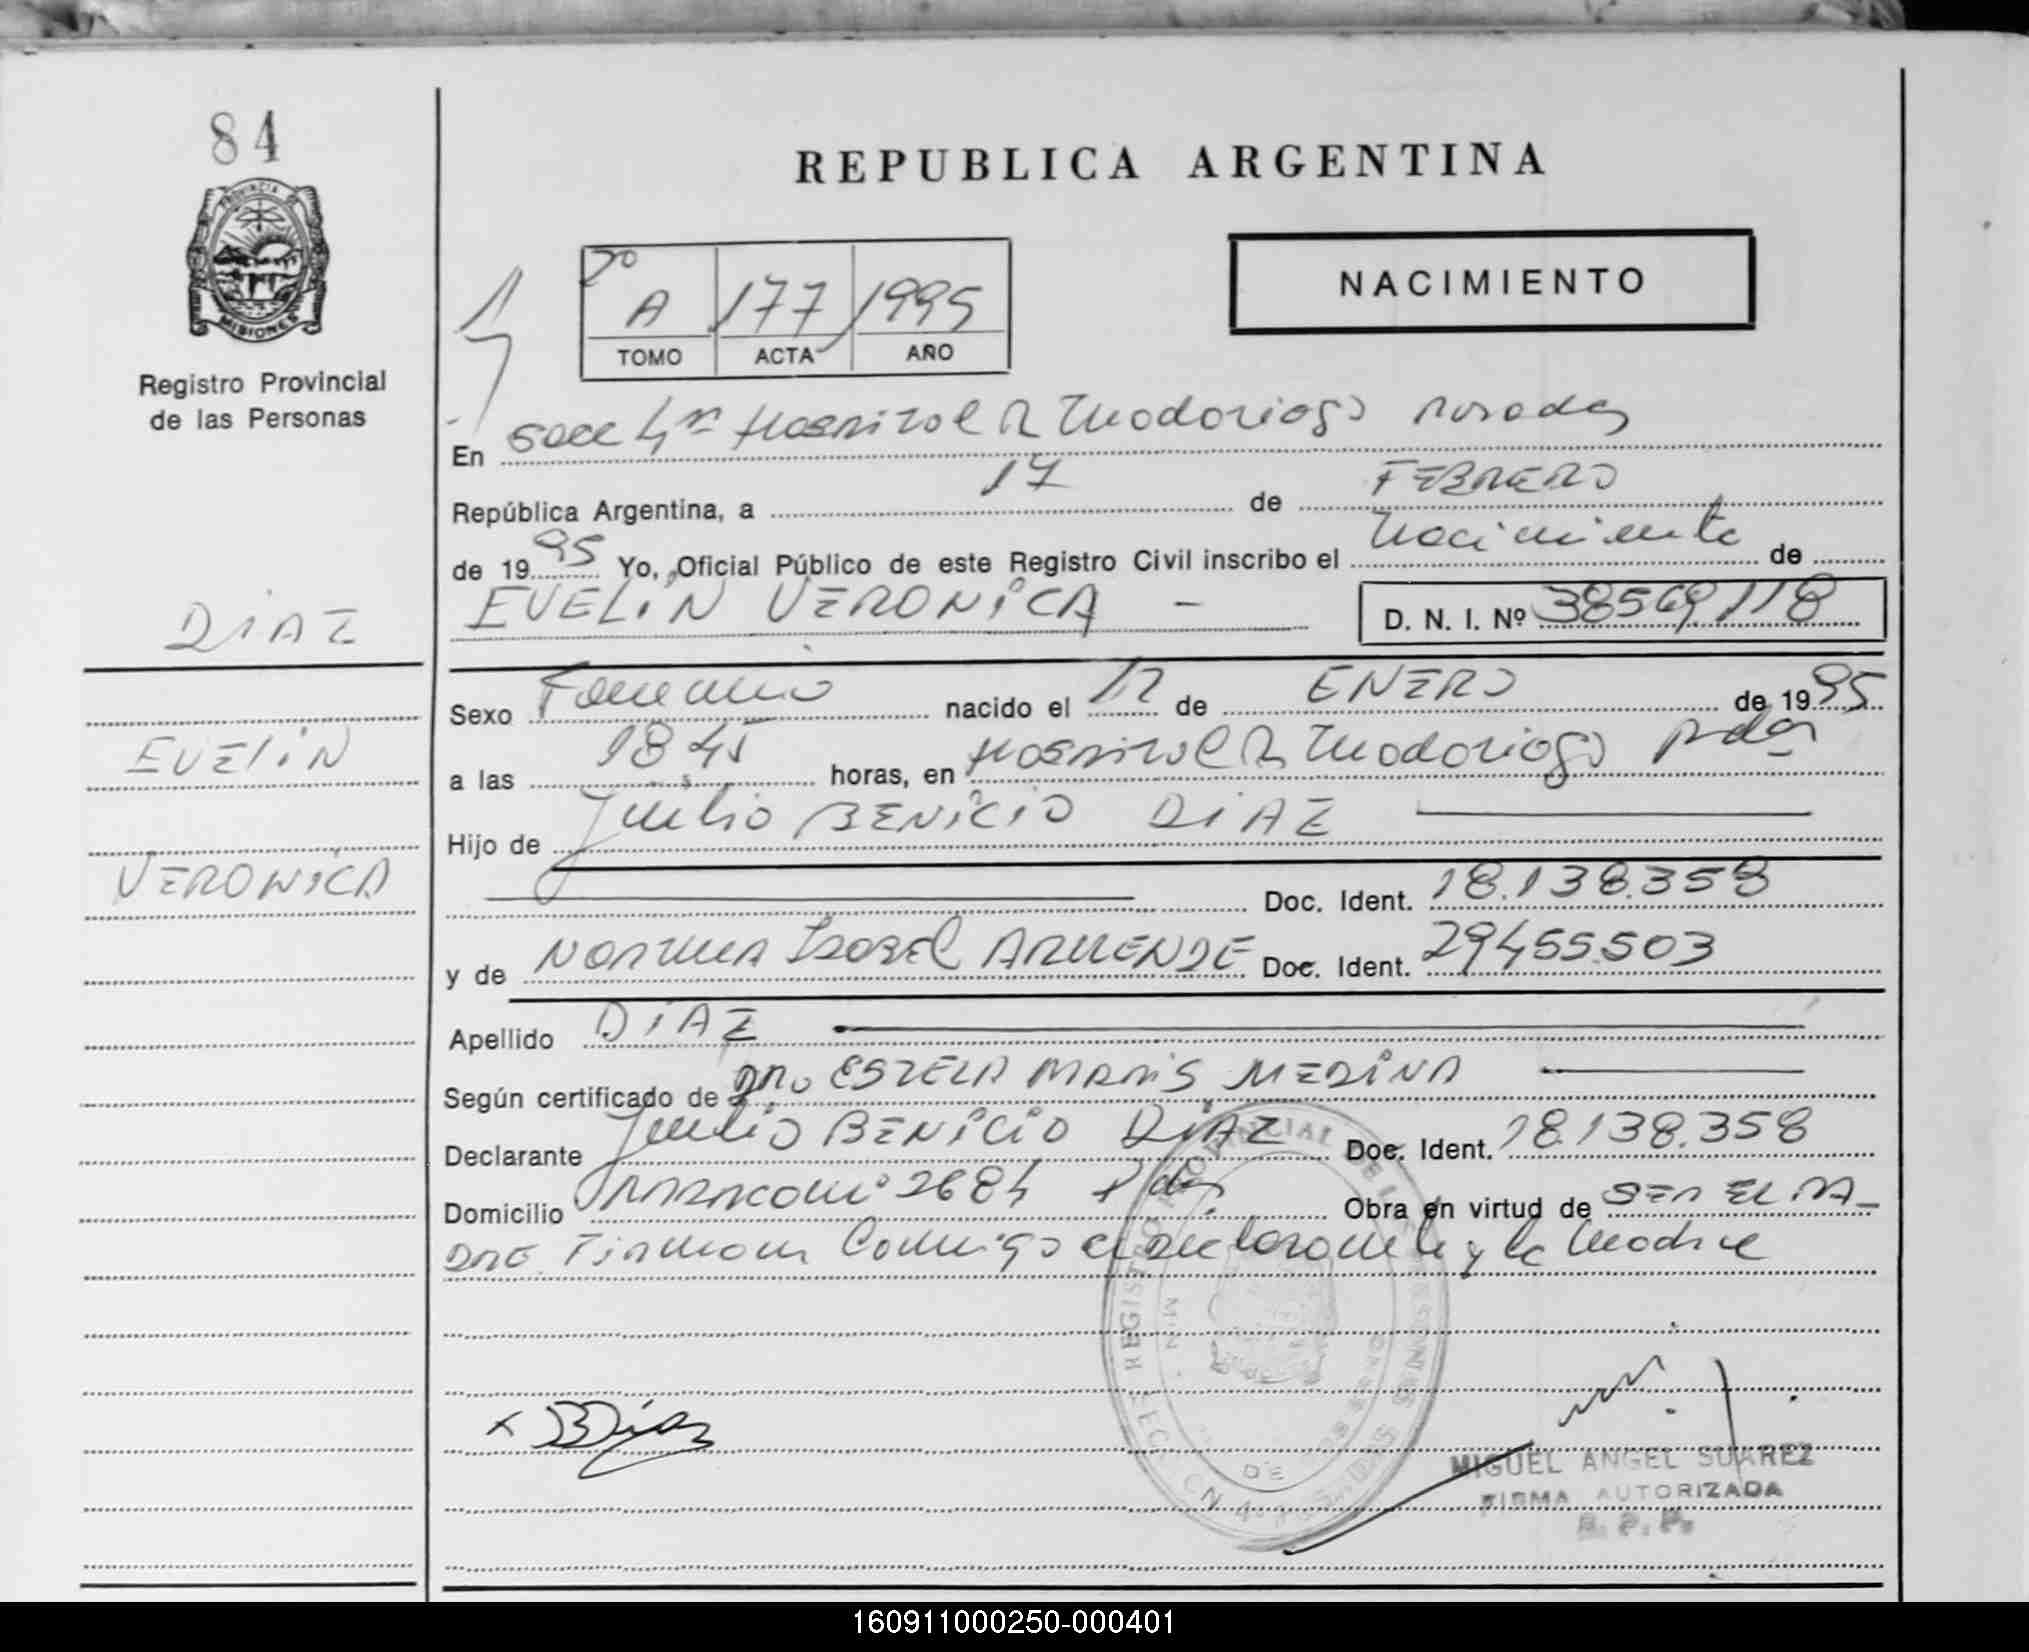 84
PROVINCIA DE
MISIONES
Registro Provincial
de las Personas
REPUBLICA ARGENTINA
NACIMIENTO
2º
A 177 1995
TOMO ACTA AÑO
En Secc 4ª Hospital R Madariaga Posadas
República Argentina, a 17 de FEBRERO
de 1995 Yo, Oficial Público de este Registro Civil inscribo el nacimiento de
EVELIN VERONICA - D. N. I. Nº 38569118
DIAZ
EVELIN
VERONICA
Sexo Femenino nacido el 12 de ENERO de 1995
a las 18 45 horas, en Hospital R Madariaga Pdas
Hijo de Julio BENICIO DIAZ
Doc. Ident. 18.138.358
y de NORMA ISABEL Doc. Ident. 29455.503
Apellido DIAZ
Según certificado de ESTELA MARIS MEDINA
Declarante Julio BENICIO DIAZ Doc. Ident. 18.138.358
Domicilio 2684 Pdas Obra en virtud de SER EL PA-
DRE Firman Conmigo el declarante y la Madre
x BDiaz
MIGUEL ANGEL SUAREZ
FIRMA AUTORIZADA
R. P. P.
160911000250-000401